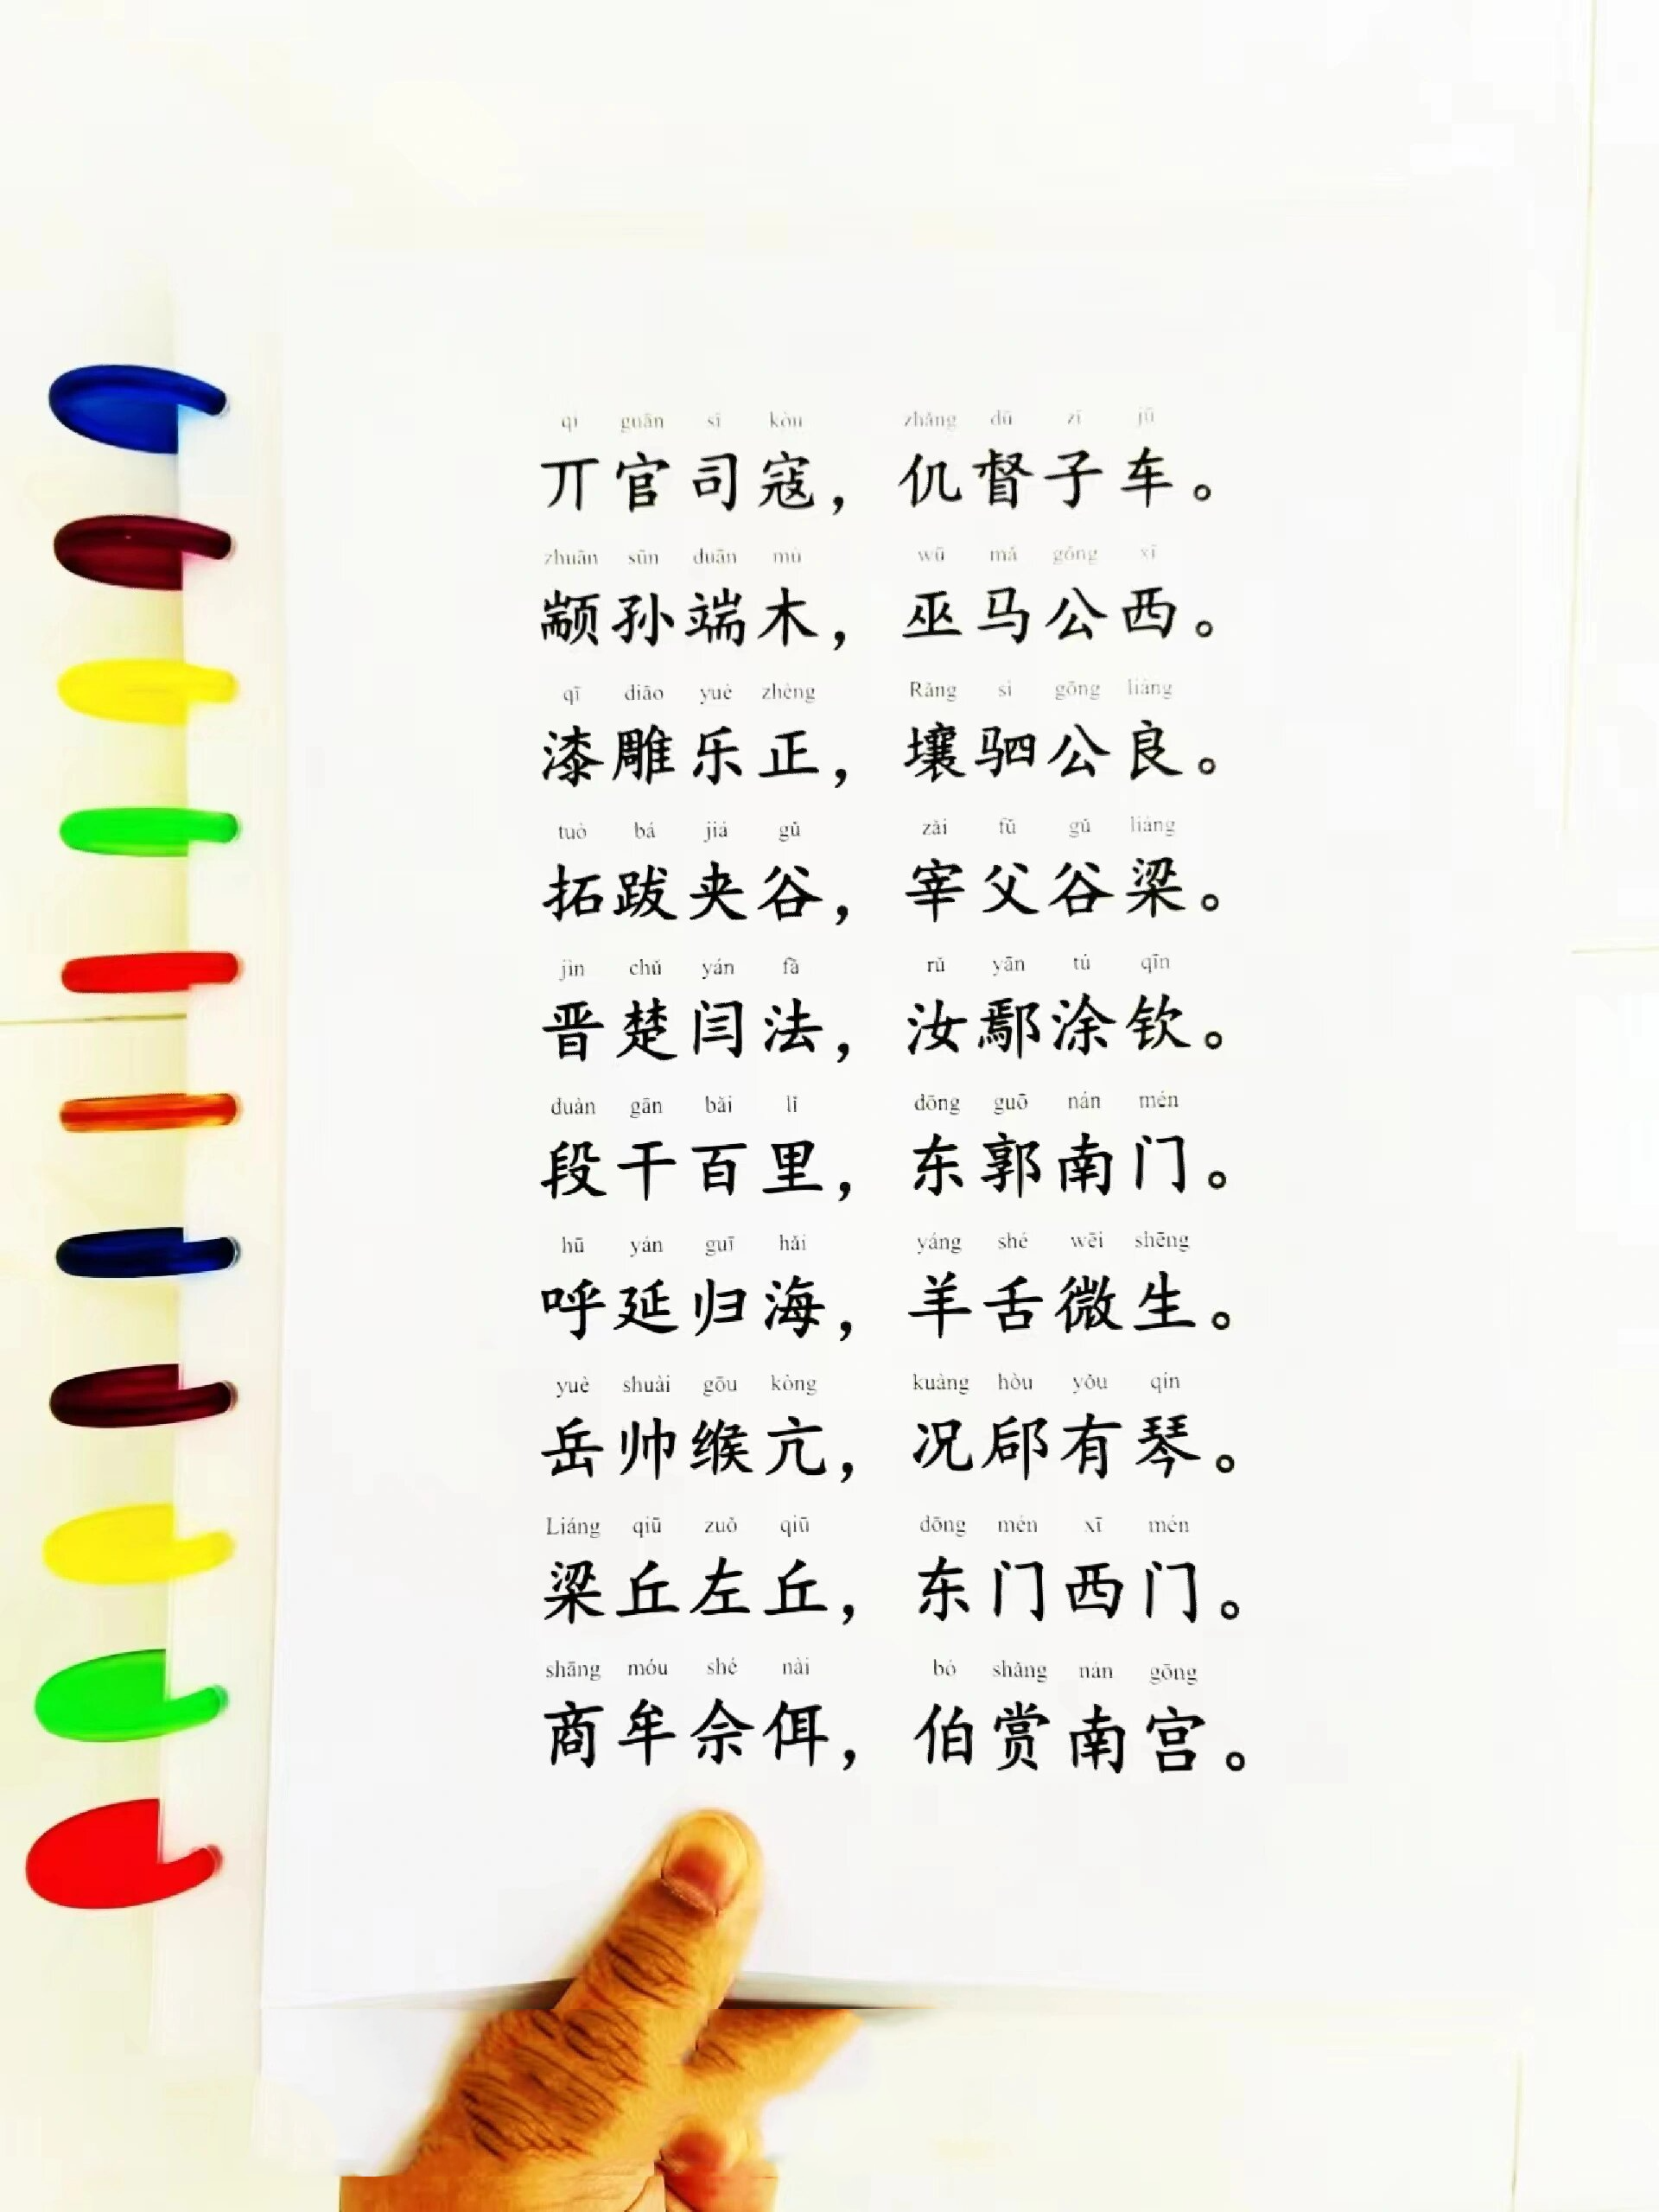 qí guān sī kòu zhǎng dū zǐ jū
亓官司寇，仉督子车。
zhuān sūn duān mù wū mǎ gōng xī
颛孙端木，巫马公西。
qī diāo yuè zhèng Rǎng sì gōng liáng
漆雕乐正，壤驷公良。
tuò bá jiá gǔ zǎi fǔ gǔ liáng
拓跋夹谷，宰父谷梁。
jìn chǔ yán fǎ rǔ yān tú qīn
晋楚闫法，汝鄢涂钦。
duàn gān bǎi lǐ dōng guō nán mén
段干百里，东郭南门。
hū yán guī hǎi yáng shé wēi shēng
呼延归海，羊舌微生。
yuè shuài gōu kòng kuàng hòu yǒu qín
岳帅缑亢，况郈有琴。
Liáng qiū zuǒ qiū dōng mén xī mén
梁丘左丘，东门西门。
shāng móu shé nài bó shǎng nán gōng
商牟佘佴，伯赏南宫。